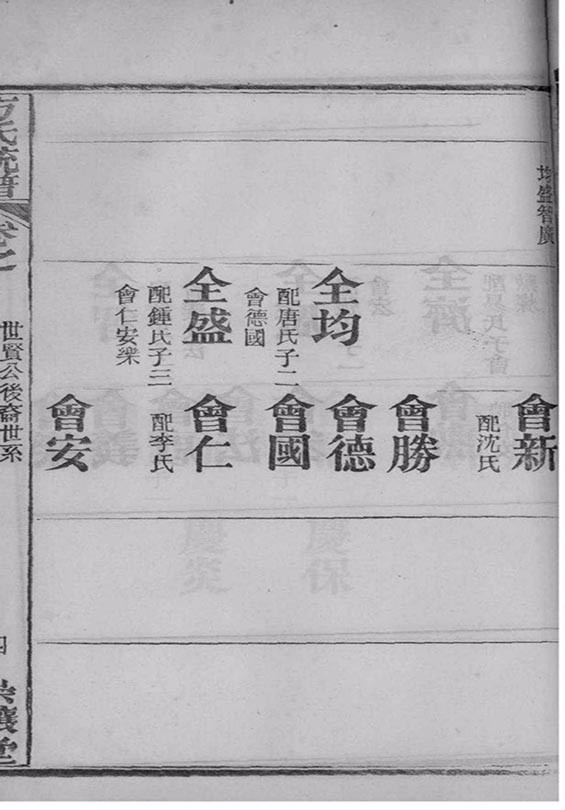 均盛智廣
會新
配沈氏
會勝
全均
配唐氏子二
會德國
會德
會國
全盛
配鍾氏子三
會仁安樂
會仁
配李氏
會安
氏統譜
卷之
世賢公後裔世系
四
讓堂